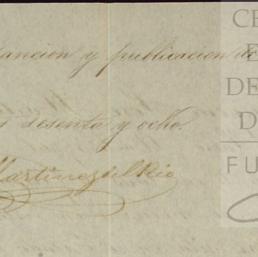 sancion y publicacion de
sesenta y ocho.
Martinez del Rio
CE
E
DE
D
FU